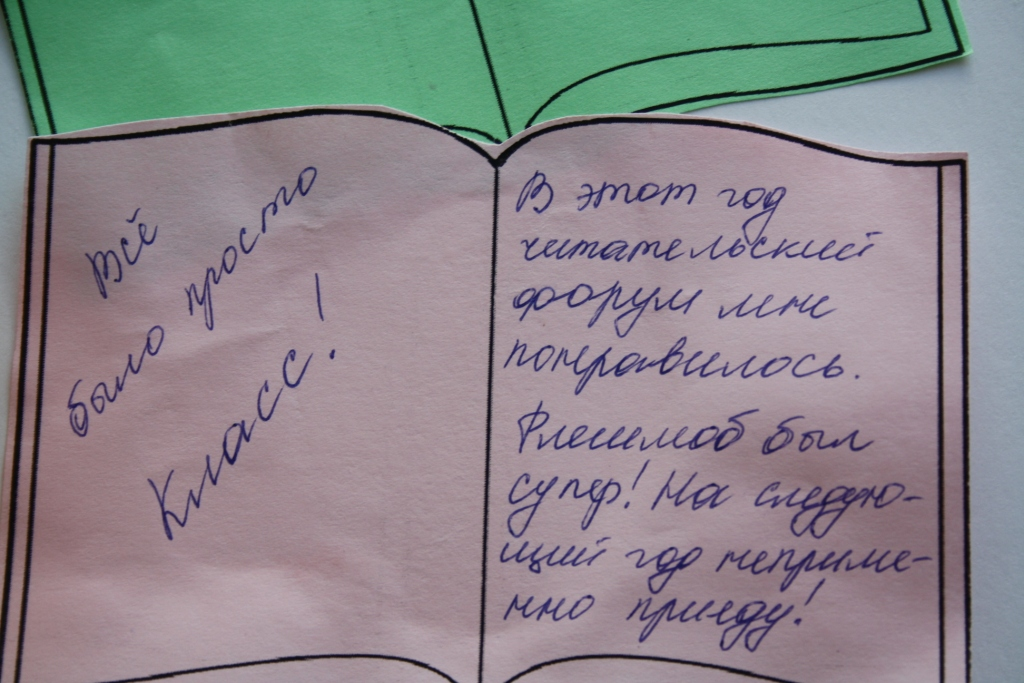 Всё
было просто
Класс!
В этот год
читательский
форум мне
понравилось.
Флешмоб был
супер! На следую-
щий год неприме-
нно приеду!